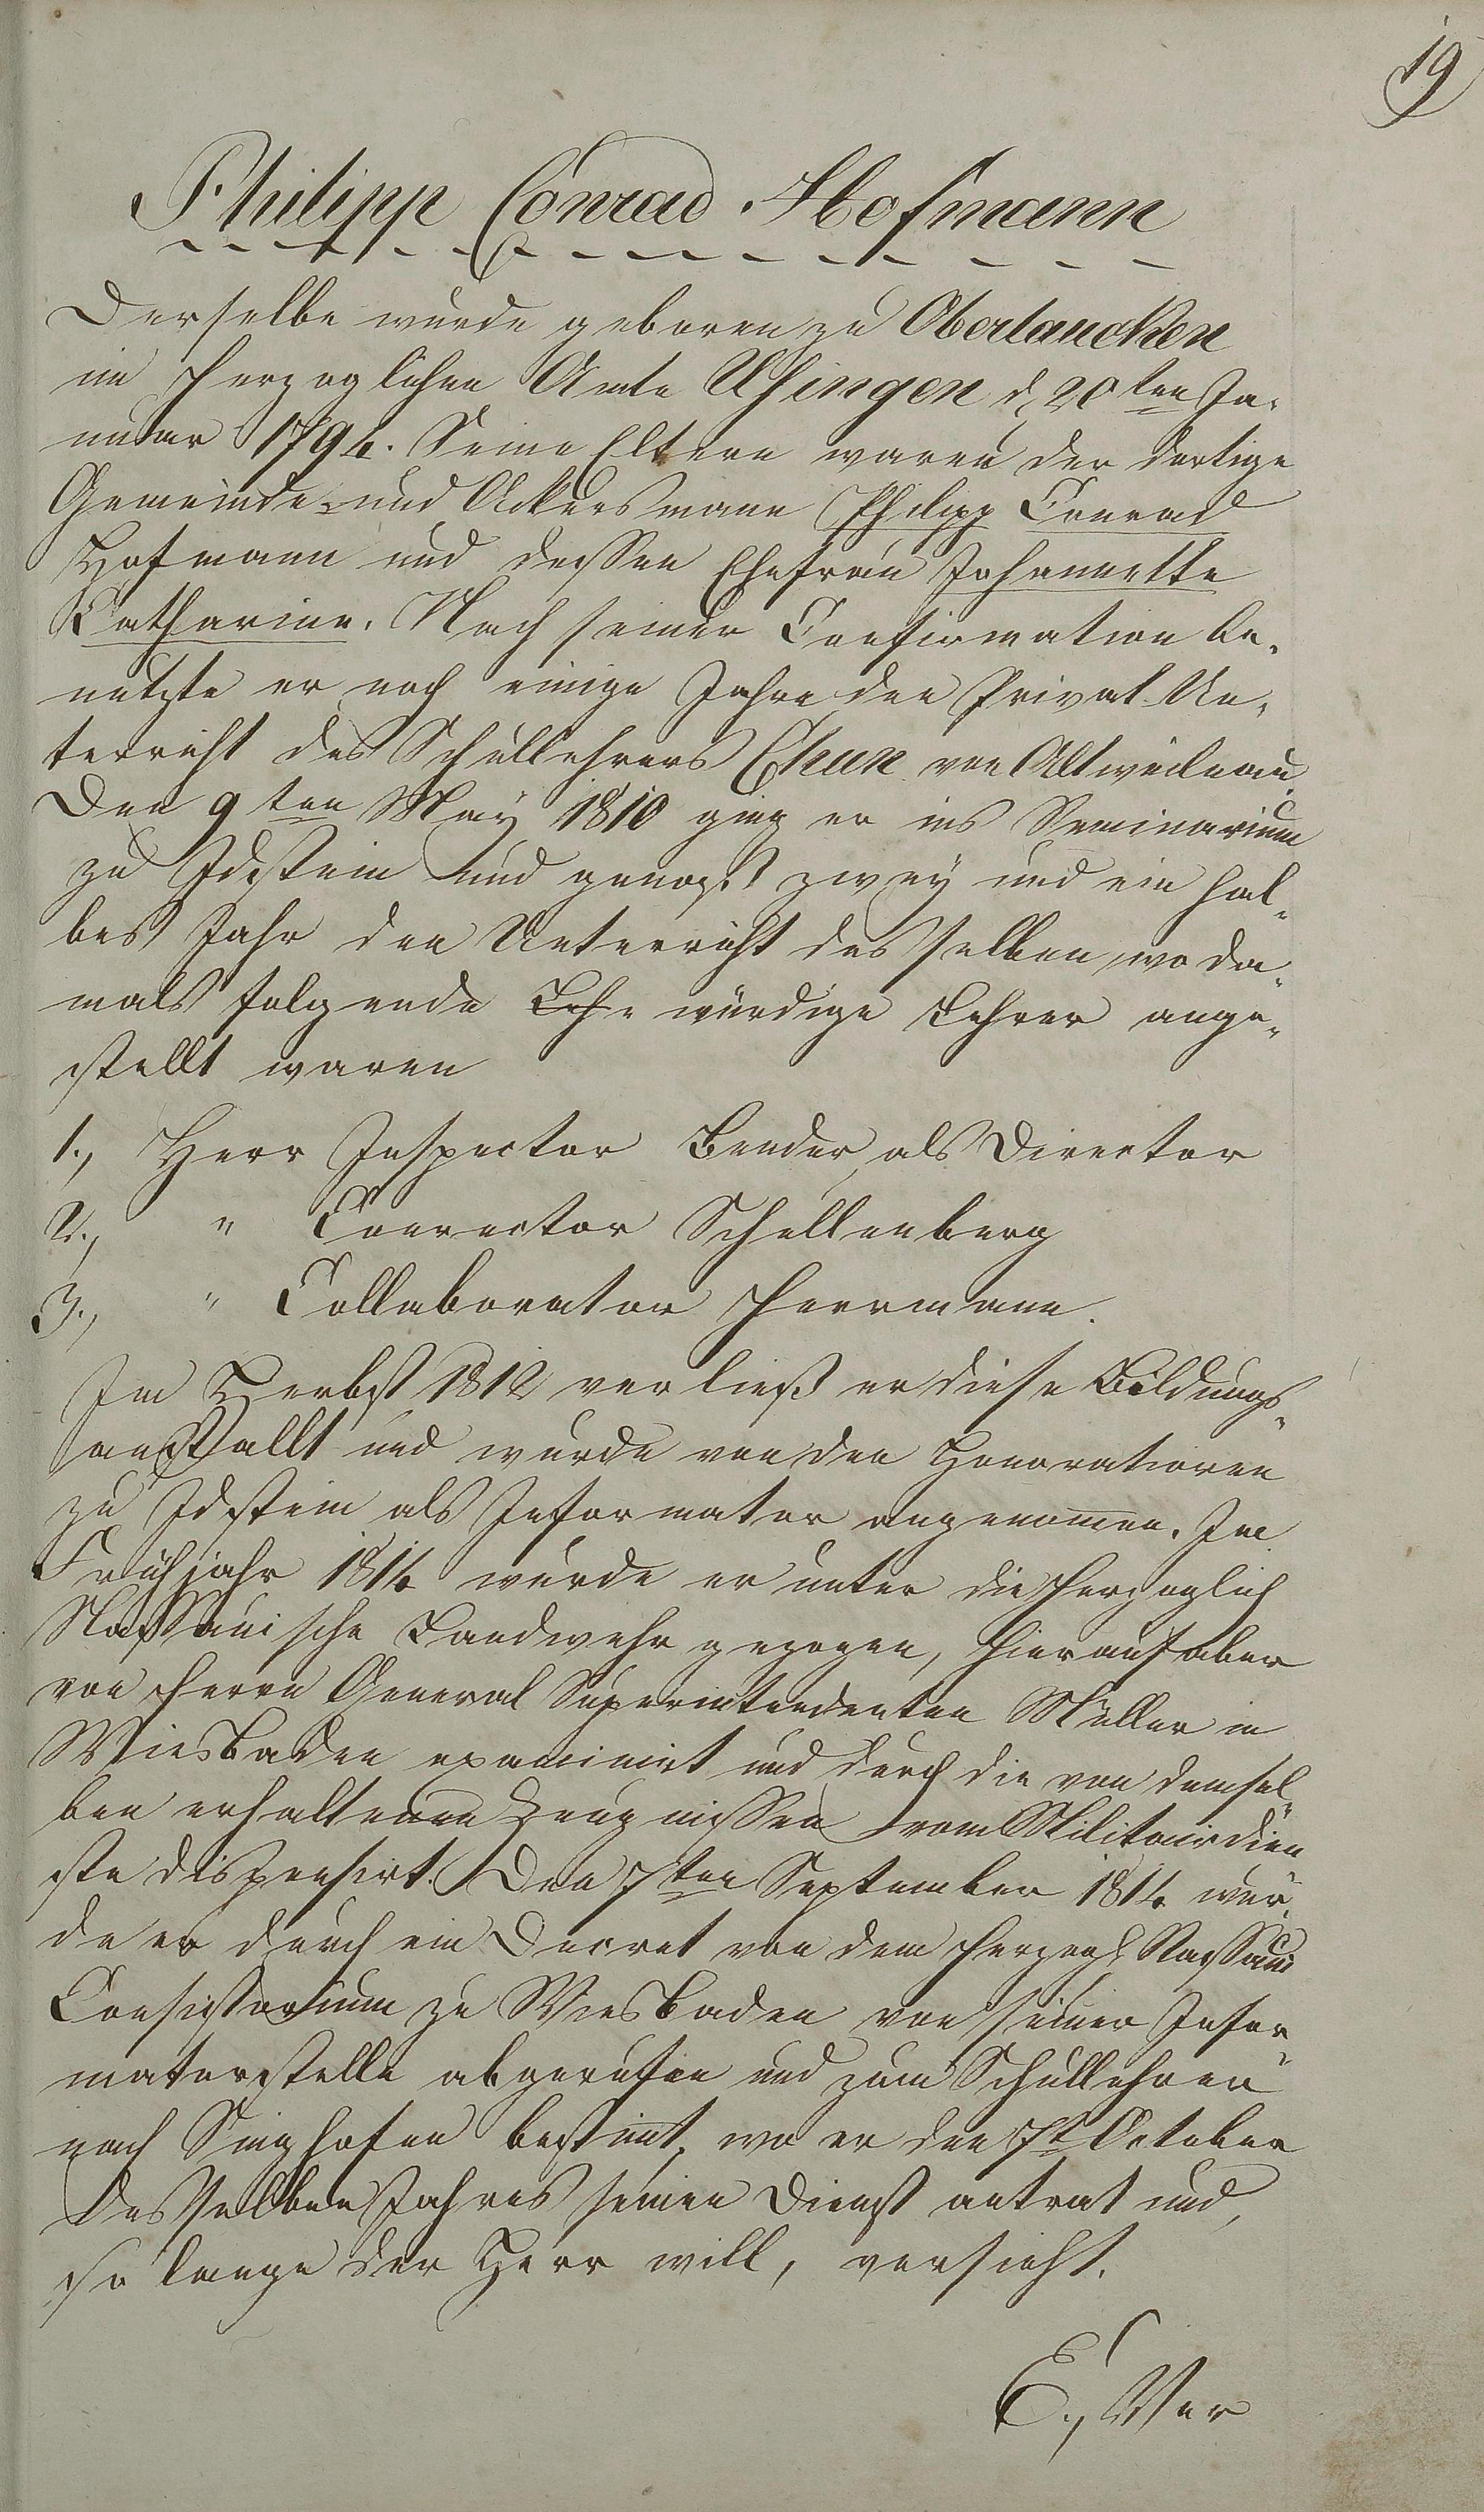 19
Philipp Conrad Hofmann
Derselbe wurde geboren zu Oberlaucken
im Herzoglichen Amte Usingen d. 20ten Ja-
nuar 1794. Seine Eltern waren der dortige
Gemeinde- und Ackersmann Philipp Conrad
Hofmann und dessen Ehefrau Johannette
Catharine. Nach seiner Confirmation be-
nutzte er noch einige Jahre den Privat-Un-
terricht des Schullehrers Chun von Altweilnau.
Den 9ten May 1810 ging er ins Seminarium
zu Idstein und genoß zwey und ein hal-
bes Jahr den Unterricht desselben, wo da-
mals folgende Leh- würdige Lehrer ange-
stellt waren
1., Herr Inspector Bender, als Director
2., " Conrector Schellenberg
3., " Collaborator Herrmann.
Im Herbst 1812 verließ er diese Bildungs-
anstallt und wurde von den Honoratioren
zu Idstein als Informator angenommen. Im
Frühjahr 1814 wurde er unter die Herzoglich
Nassauische Landwehr gezogen, hierauf aber
von Herrn General Superintendenten Müller in
Wiesbaden examinirt und durch die von demsel-
ben erhaltenen Zeugnissen vom Militairdien
ste dispensirt. Den 7ten September 1814 wur-
de er durch ein Decret von dem Herzogl. Nassaui
Consistorium zu Wiesbaden von seiner Infor-
matorstelle abgerufen und zum Schullehrer
nach Singhofen bestimmt, wo er den 7t October
desselben Jahres seinen Dienst antrat und,
so lange der Herr will, versieht.
E., Ver